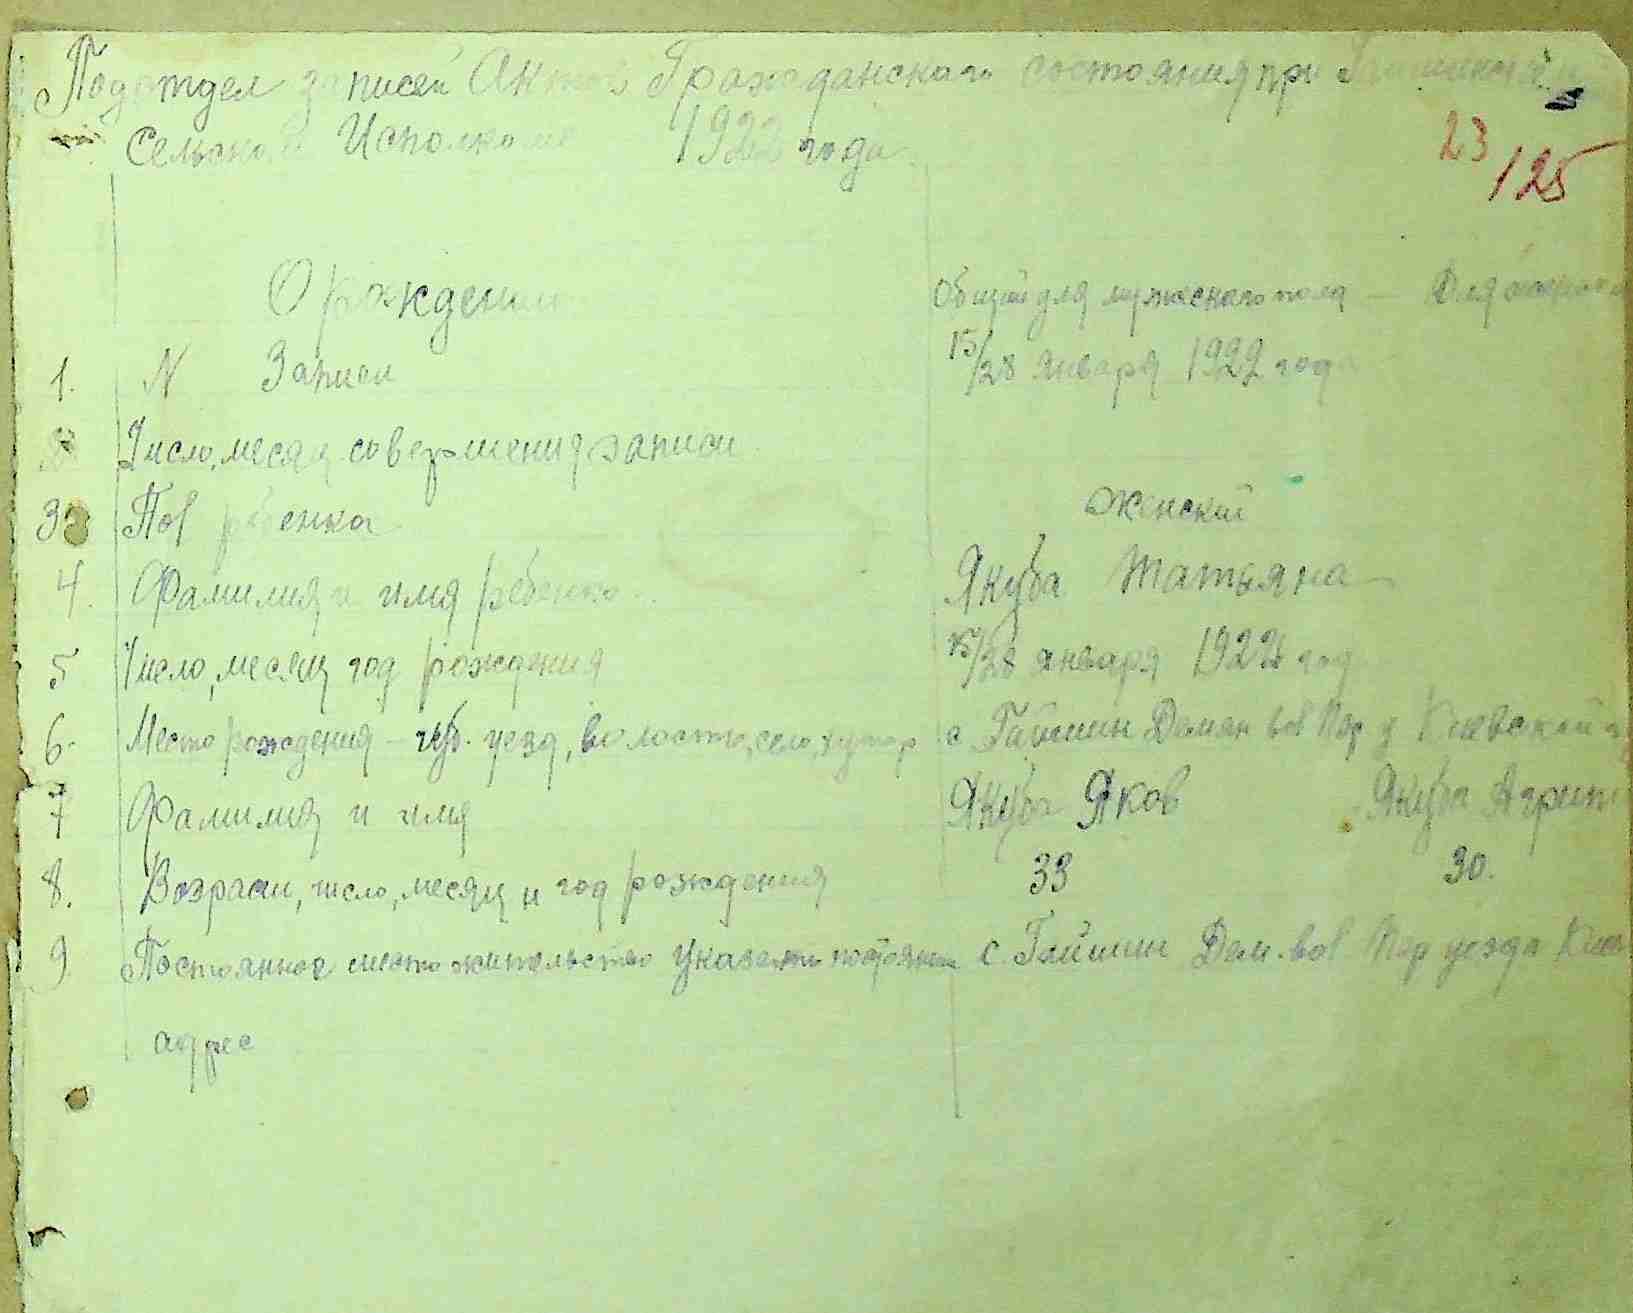 Подотдел записей Актов Гражданского состояния при
Сельском Исполкоме 1922 года
23
/125
О рождении
Общий для мужеского пола — Для
1. N Записи 15/28 января 1922 года
Число, месяц совершения записи
3 Пол ребенка женский
4. Фамилия и имя ребенка Якуба Татьяна
5 Число, месяц год рождения 15/28 января 1922 год
6. Место рождения – губ. уезд, волость, село, хутор с. Гайшин Демян вол Пер у Киевской г
7 Фамилия и имя Якуба Яков Якуба Агрип
8. Возраст, число, месяц и год рождения 33 30.
9 Постоянное место жительство указать постоянн с. Гайшин Дем. вол Пер уезда Киев
адрес